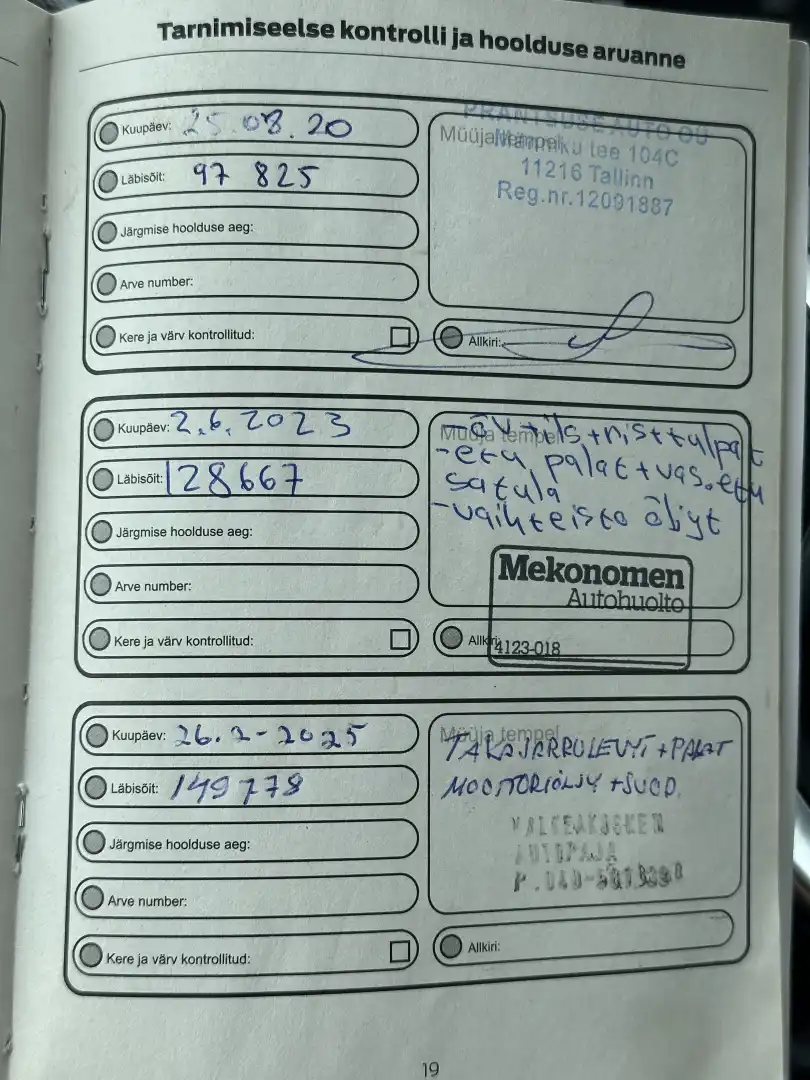 Tarnimiseelse kontrolli ja hoolduse aruanne
Kuupäev: 25.08.20
Läbisõit: 97 825
Järgmise hoolduse aeg:
Arve number:
Kere ja värv kontrollitud:
PRANTSUSE AUTO OÜ
Müüja tempel
Männiku tee 104C
11216 Tallinn
Reg.nr.12091887
Allkiri:
Kuupäev: 2.6.2023
Läbisõit: 128667
Järgmise hoolduse aeg:
Arve number:
Kere ja värv kontrollitud:
Müüja tempel
-etu palat + vas.etu
satula
-vaihteisto öljyt
Mekonomen
Autohuolto
4123-018
Allkiri:
Kuupäev: 26.2-2025
Läbisõit: 149778
Järgmise hoolduse aeg:
Arve number:
Kere ja värv kontrollitud:
Müüja tempel
TAKAJARRULEVYT + PALAT
MOOTTORIÖLJY + SUOD.
VALKEAKOSKEN
AUTOPAJA
Allkiri:
19